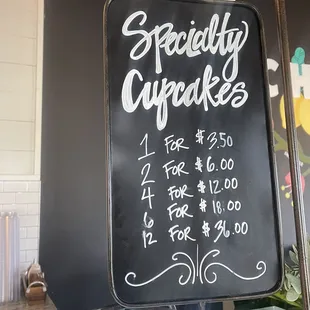 Specialty
Cupcakes
1 FOR $3.50
2 FOR $6.00
4 FOR $12.00
6 FOR $18.00
12 FOR $36.00